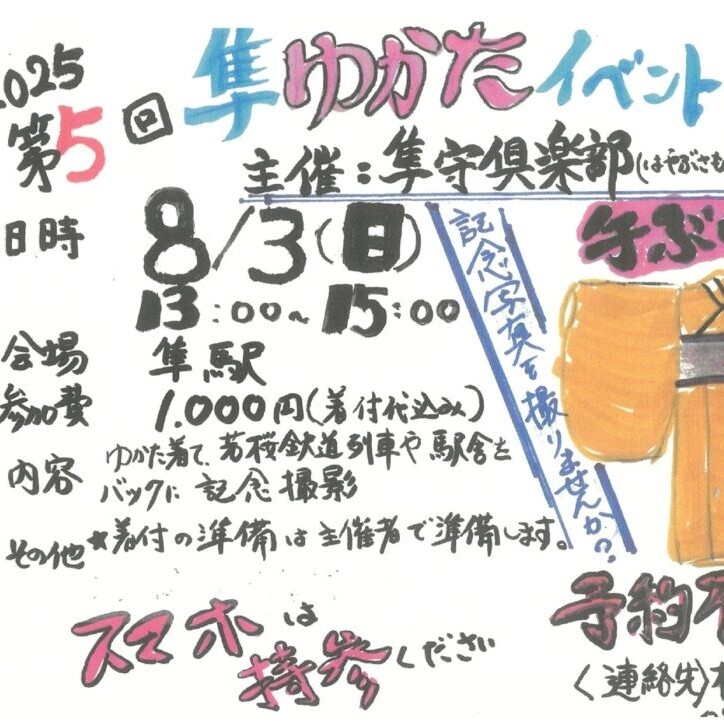 2025
第5回 隼ゆかたイベント
主催：隼守倶楽部(はやぶさも
日時 8/3(日)
13:00〜15:00
会場 隼駅
参加費 1.000円(着付代込み)
内容 ゆかた着て、若桜鉄道列車や駅舎を
バックに 記念撮影
その他 *着付の準備は主催者で準備します。
スマホは
持参ください
記念写真を撮りませんか?
手ぶ
予約
〈連絡先〉